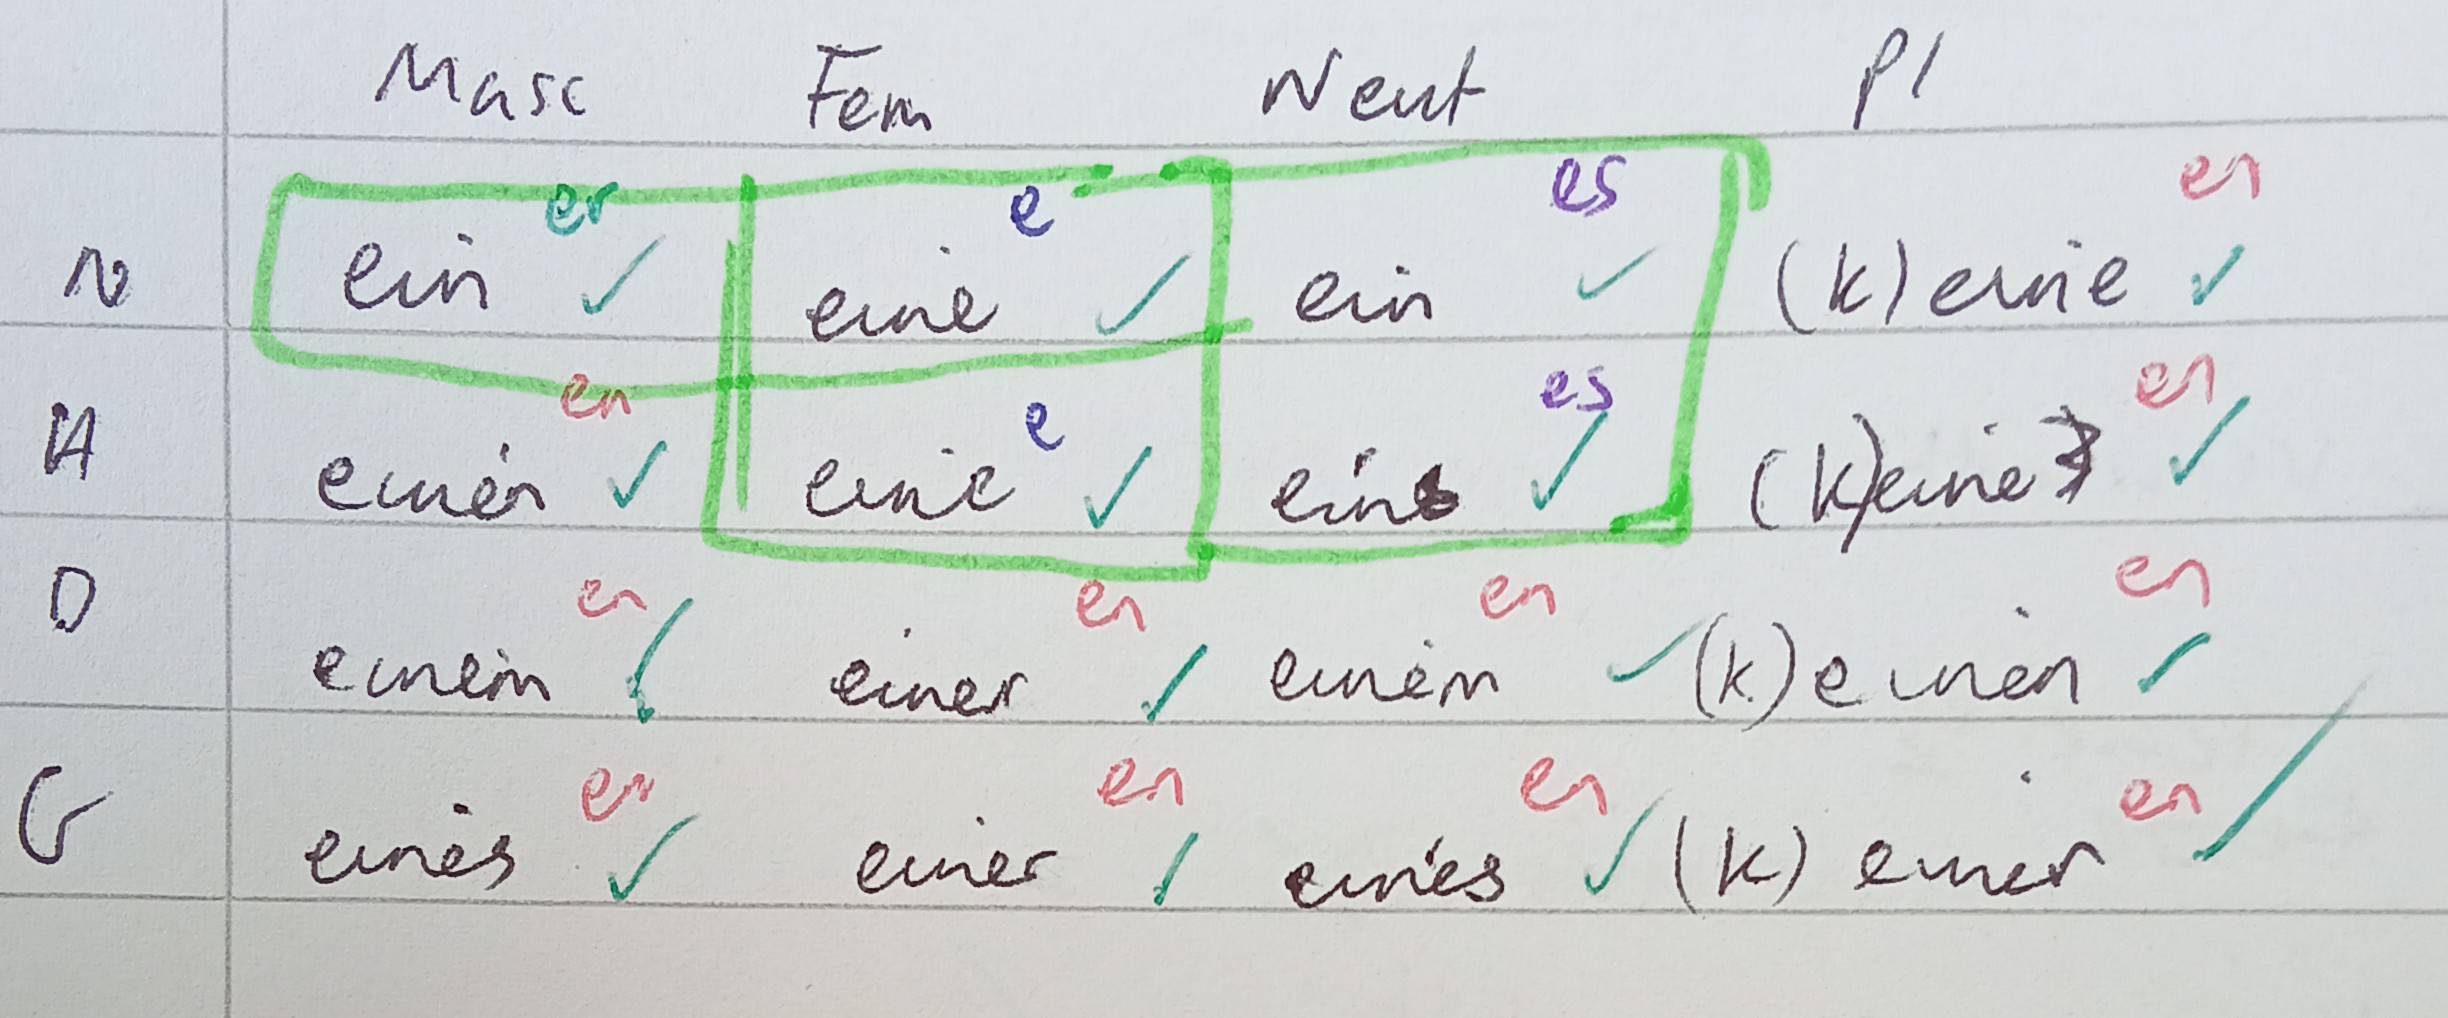 Masc Fem Neut Pl
er e es en
N ein ✓ eine ✓ ein ✓ (k)eine ✓
en e es en
A einen ✓ eine ✓ ein ✓ (k)eine ✓
en en en en
D einem ✓ einer ✓ einem ✓ (k)einen ✓
en en en en
G eines ✓ einer ✓ eines ✓ (k)einer ✓